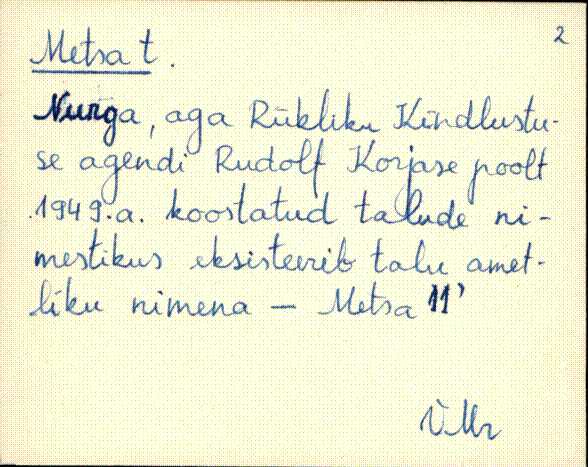 2
Metsa t.
Nurga, aga Riikliku Kindlustu-
se agendi Rudolf Korjase poolt
1949.a. koostatud talude ni-
mestikus eksisteerib talu amet-
liku nimena - Metsa 11'